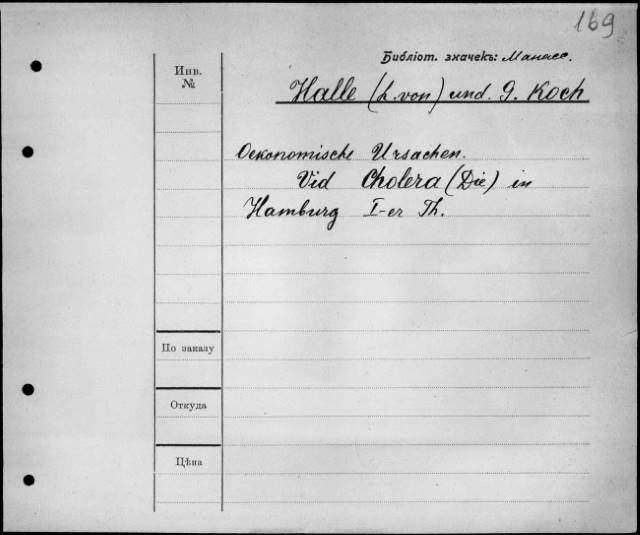 169
Библіот. значекъ: Манасс.
Инв.
№
Halle (h. von) und. G. Koch
Oekonomische Ursachen.
Vid Cholera (Die) in
Hamburg I-er Th.
По заказу
Откуда
Цѣна